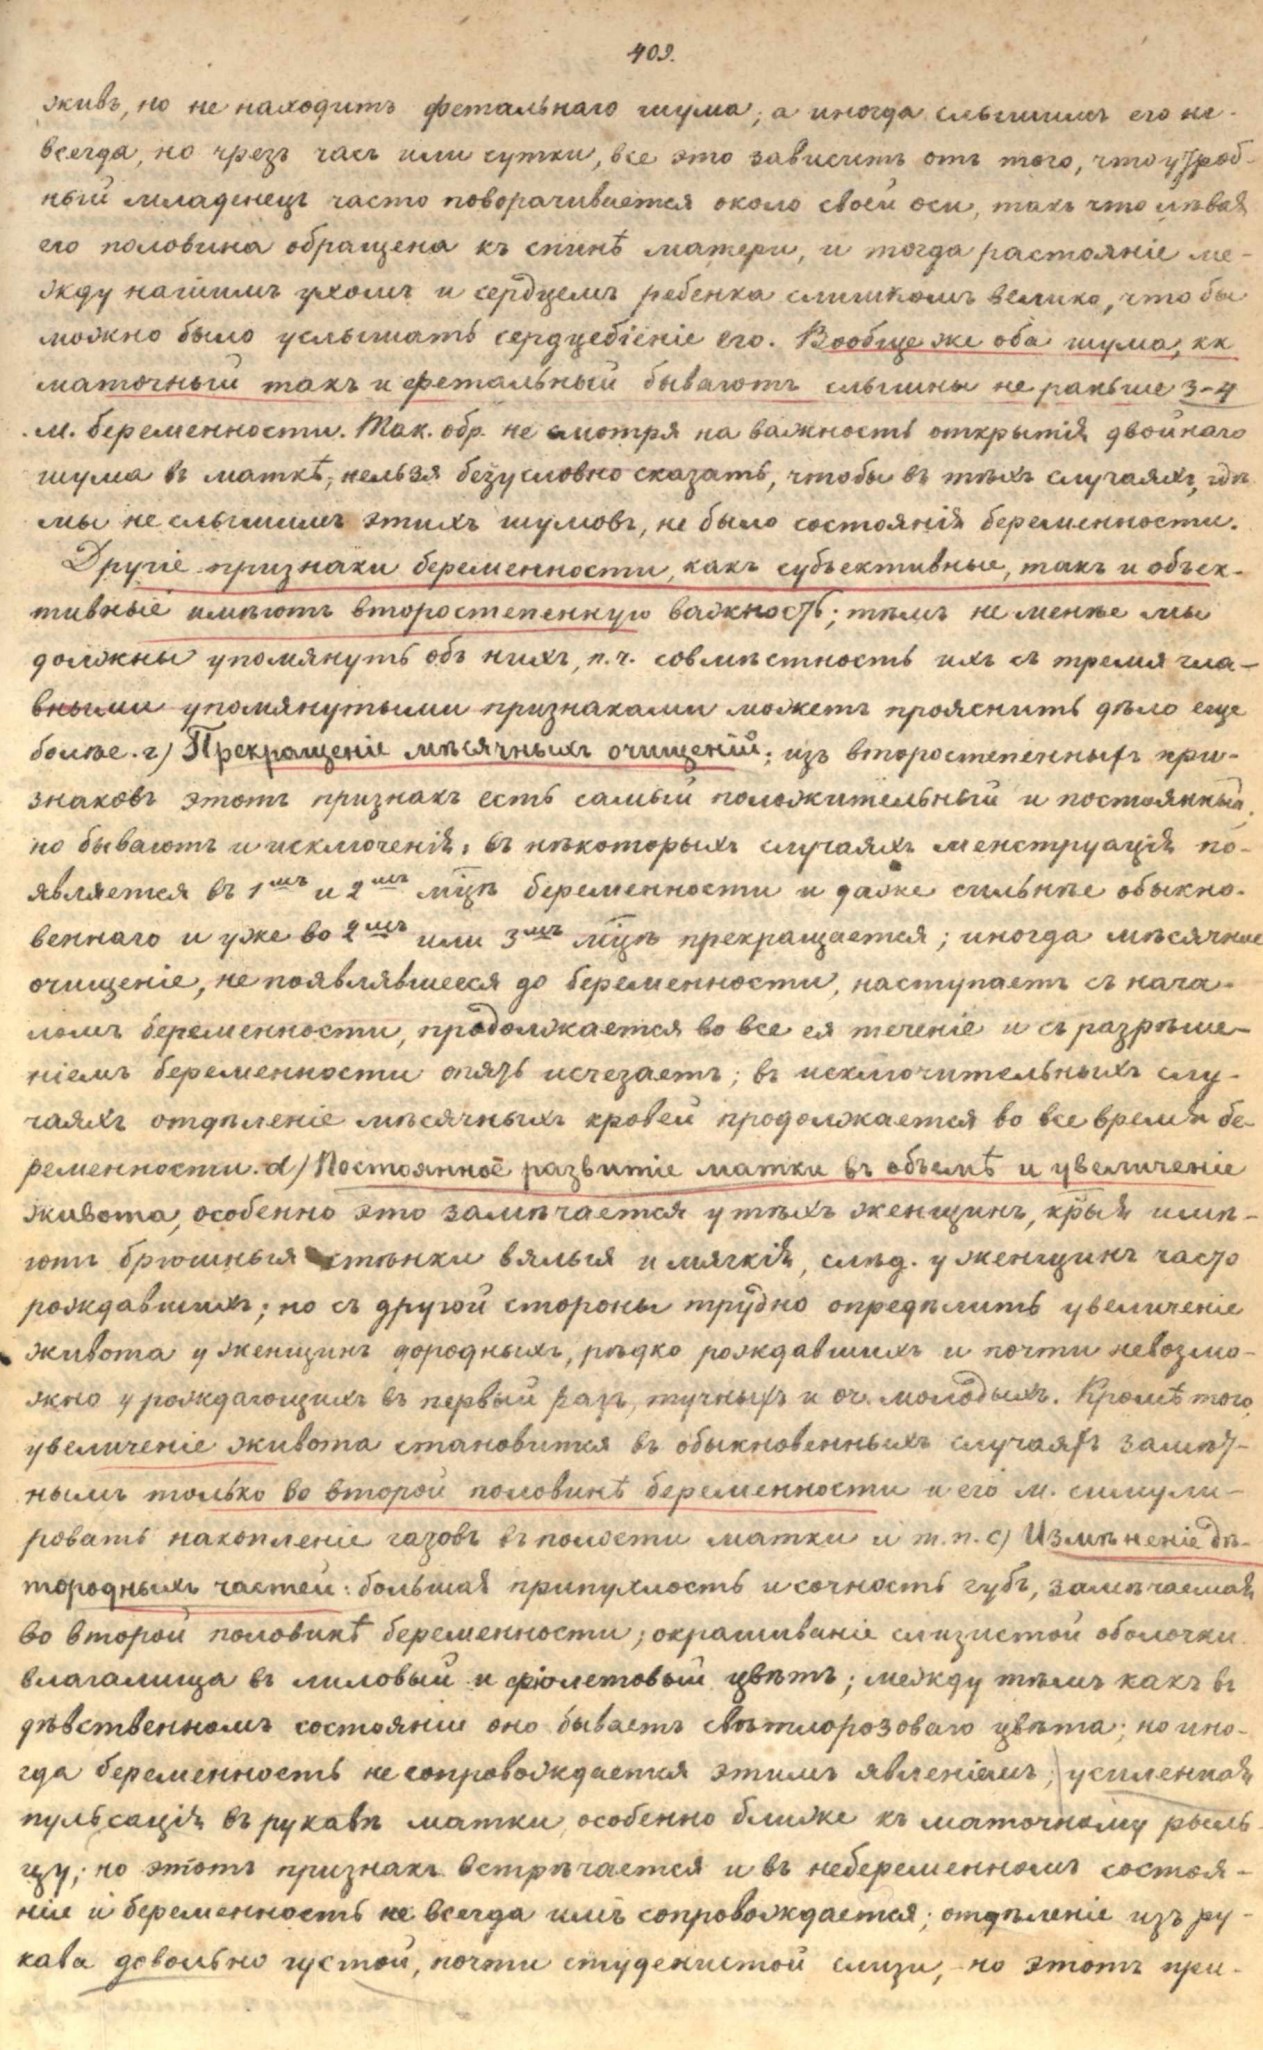 409.
живъ, но не находитъ фетальнаго шума; а иногда слышимъ его не-
всегда, но чрезъ часъ или сутки, все это зависитъ отъ того, что утроб-
ный младенецъ часто поворачивается около своей оси, такъ что лѣвая
его половина обращена къ спинѣ матери, и тогда растояніе ме-
жду нашимъ ухомъ и сердцемъ ребенка слишкомъ велико, что бы
можно было услышать сердцебіеніе его. Вообще же оба шума, кк
маточный такъ и фетальный бываютъ слышны не раньше 3-4
м. беременности. Так. обр. не смотря на важность открытія двойнаго
шума въ маткѣ, нельзя безусловно сказать, чтобы въ тѣхъ случаяхъ, гдѣ
мы не слышимъ этихъ шумовъ, не было состоянія беременности.
Другіе признаки беременности, какъ субъективные, такъ и объек-
тивные имѣютъ второстепенную важность; тѣмъ не менѣе мы
должны упомянуть объ нихъ, п.ч. совмѣстность ихъ съ тремя гла-
вными упомянутыми признаками можетъ прояснить дѣло еще
болѣе. г) Прекращеніе мѣсячныхъ очищеній; изъ второстепенныхъ при-
знаковъ этотъ признакъ есть самый положительный и постоянный,
но бываютъ и исключенія, въ нѣкоторыхъ случаяхъ менструація по-
является въ 1мъ и 2мъ мцѣ беременности и даже сильнѣе обыкно-
веннаго и уже во 2мъ или 3мъ мцѣ прекращается; иногда мѣсячное
очищеніе, не появлявшееся до беременности, наступаетъ съ нача-
ломъ беременности, продолжается во все ея теченіе и съ разрѣше-
ніемъ беременности опять исчезаетъ; въ исключительныхъ слу-
чаяхъ отдѣленіе мѣсячныхъ кровей продолжается во все время бе-
ременности. d) Постоянное развитіе матки въ объемѣ и увеличеніе
живота, особенно это замѣчается у тѣхъ женщинъ, крыя имѣ-
ютъ брюшныя стѣнки вялыя и мягкія, слѣд. у женщинъ часто
рождавшихъ; но съ другой стороны трудно опредѣлить увеличеніе
живота у женщинъ дородныхъ, рѣдко рождавшихъ и почти невозмо-
жно у рождающихъ въ первый разъ, тучныхъ и оч. молодыхъ. Кромѣ того,
увеличеніе живота становится въ обыкновенныхъ случаяхъ замѣт-
нымъ только во второй половинѣ беременности и его м. симули-
ровать накопленіе газовъ въ полости матки и т.п. с) Измѣненіе дѣ-
тородныхъ частей: большая припухлость и сочность губъ, замѣчаемая
во второй половинѣ беременности; окрашиваніе слизистой оболочки
влагалища въ лиловый и фіолетовый цвѣтъ; между тѣмъ какъ въ
дѣвственномъ состояніи оно бываетъ свѣтлорозоваго цвѣта; но ино-
гда беременность не сопровождается этимъ явленіемъ; усиленная
пульсація въ рукавѣ матки, особенно ближе къ маточному рыль-
цу; но этотъ признакъ встрѣчается и въ небеременномъ состоя-
ніи и беременность не всегда имъ сопровождается; отдѣленіе изъ ру-
кава довольно густой, почти студенистой слизи, но этотъ при-